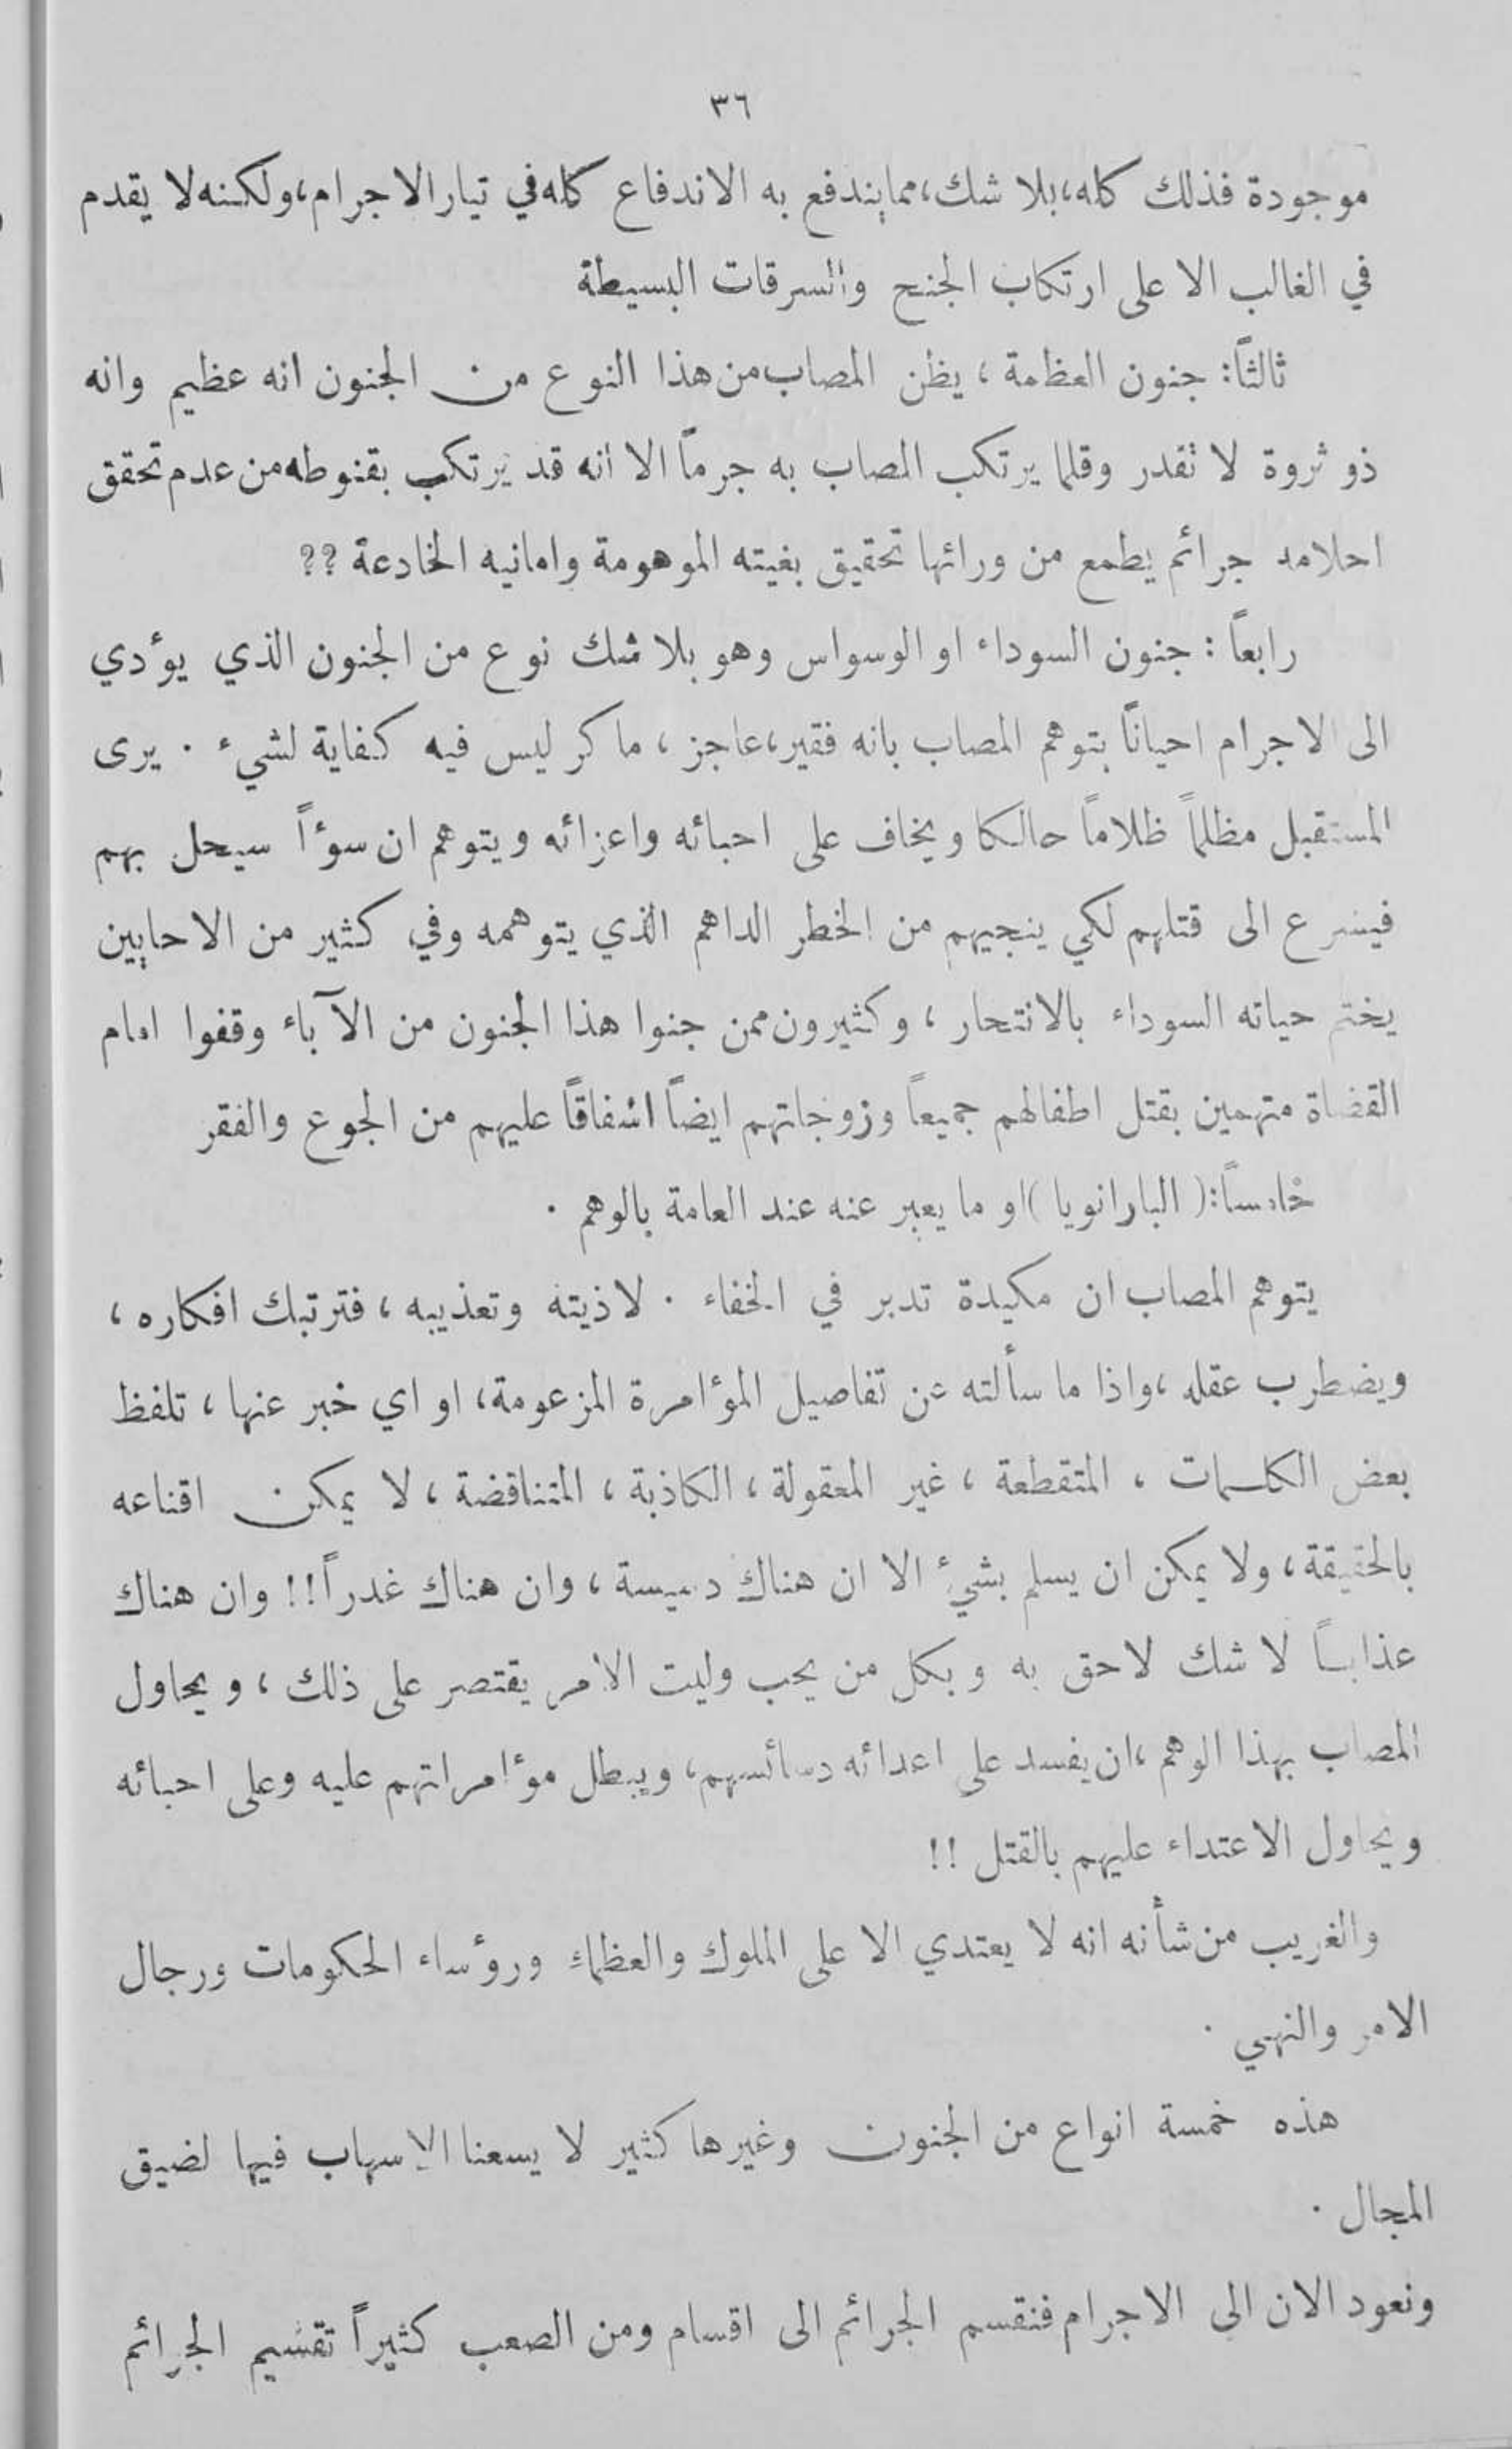 ٣٦
موجودة فذلك كله، بلا شك، مما يندفع به الاندفاع كله في تيار الاجرام، ولكنه لا يقدم
في الغالب الا على ارتكاب الجنح والسرقات البسيطة
ثالثاً: جنون العظمة، يظن المصاب من هذا النوع من الجنون انه عظيم وانه
ذو ثروة لا تقدر وقلما يرتكب المصاب به جرماً الا انه قد يرتكب بقنوطه من عدم تحقق
احلامه جرائم يطمع من ورائها تحقيق بغيته الموهومة وامانيه الخادعة ??
رابعاً: جنون السوداء او الوسواس وهو بلا شك نوع من الجنون الذي يؤدي
الى الاجرام احياناً بتوهم المصاب بانه فقير، عاجز، ماكر ليس فيه كفاية لشيء . يرى
المستقبل مظلماً ظلاماً حالكا ويخاف على احبائه واعزائه ويتوهم ان سوءاً سيحل بهم
فيسرع الى قتلهم لكي ينجيهم من الخطر الداهم الذي يتوهمه وفي كثير من الاحايين
يختم حياته السوداء بالانتحار، وكثيرون ممن جنوا هذا الجنون من الآباء وقفوا امام
القضاة متهمين بقتل اطفالهم جميعاً وزوجاتهم ايضاً اشفاقاً عليهم من الجوع والفقر
خامساً: (البارانويا) او ما يعبر عنه عند العامة بالوهم .
يتوهم المصاب ان مكيدة تدبر في الخفاء . لاذيته وتعذيبه، فترتبك افكاره،
ويضطرب عقله، واذا ما سألته عن تفاصيل المؤامرة المزعومة، او اي خبر عنها، تلفظ
بعض الكلمات، المتقطعة، غير المعقولة، الكاذبة، المتناقضة، لا يمكن اقناعه
بالحقيقة، ولا يمكن ان يسلم بشيء الا ان هناك دسيسة، وان هناك غدراً!! وان هناك
عذاباً لا شك لاحق به وبكل من يحب وليت الامر يقتصر على ذلك، ويحاول
المصاب بهذا الوهم، ان يفسد على اعدائه دسائسهم، ويبطل مؤامراتهم عليه وعلى احبائه
ويحاول الاعتداء عليهم بالقتل !!
والغريب من شأنه انه لا يعتدي الا على الملوك والعظماء ورؤساء الحكومات ورجال
الامر والنهي .
هذه خمسة انواع من الجنون وغيرها كثير لا يسعنا الاسهاب فيها لضيق
المجال .
ونعود الان الى الاجرام فنقسم الجرائم الى اقسام ومن الصعب كثيراً تقسيم الجرائم